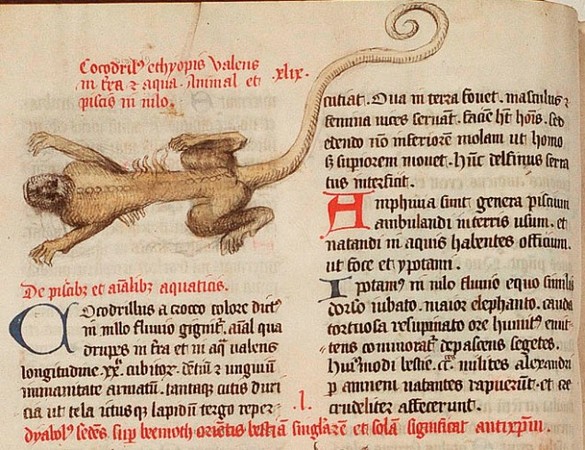 Cocodril⁹ ethyopis valens
in t̄ra ⁊ aqua. Animal et
piscis in nilo.
xlix.
De piscib⁊ et aīalib⁊ aquaticis.
Cocodrillus a crocco colore dict⁹
in nillo fluvio gignit᷑. aīal qua
drupes in t̄ra et in aq̄ valens
longitudine .xx. cubitor᷑. dētiū ⁊ unguiū
inmanitate armatū. tantaqꝫ cutis duri
cia ut tela ictusqꝫ lapidū tergo reper
cutiat. Oua in terra fouet. masculus ⁊
femina uices seruāt. faciē h̄t hoīs. sed
edendo nō inferiorē molam ut homo
sꝫ supiorem mouet. hūc delfinus serra
tus interficit.
Amphiuia sunt genera pisciū
ambulandi in terris usum. et
natandi in aquis habentes officium.
ut foce et ypotami.
Ipotam⁹ in nilo fluvio equo similis
dorso iubato. maior elephanto. cauda
tortuosa resupinato ore
tens commorat᷑. depascens segetes.
Hui⁹modi bestie .cc. milites alexandri
p amnem natantes rapuerūt. et
crudeliter affecerunt.
.l.
dyabol⁹ sedēs sup beemoth orientis bestiam singlārē et solā significat antixp̄m.